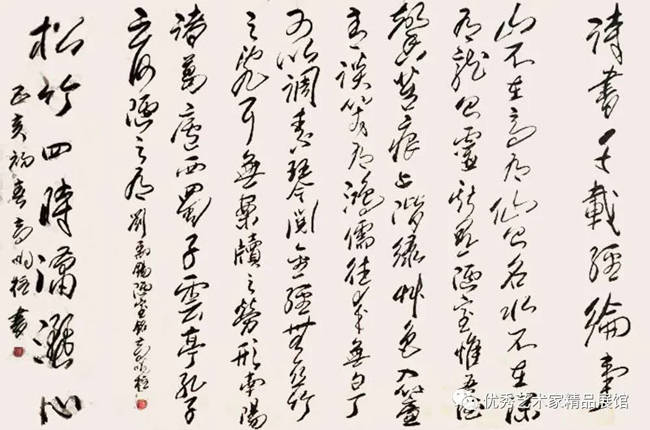 詩書千載經綸事
山不在高有仙則名水不在深
有龍則靈斯是陋室惟吾德
馨苔痕上階綠草色入簾
青談笑有鴻儒往來無白丁
可以調素琴閱金經無絲竹
之亂耳無案牘之勞形南陽
諸葛廬西蜀子雲亭孔子
云何陋之有
劉禹錫陋室銘
松竹四時瀟灑心
书
优秀艺术家精品展馆